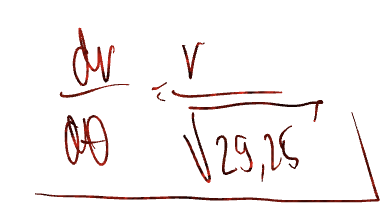 dv/dθ = v/√29,25